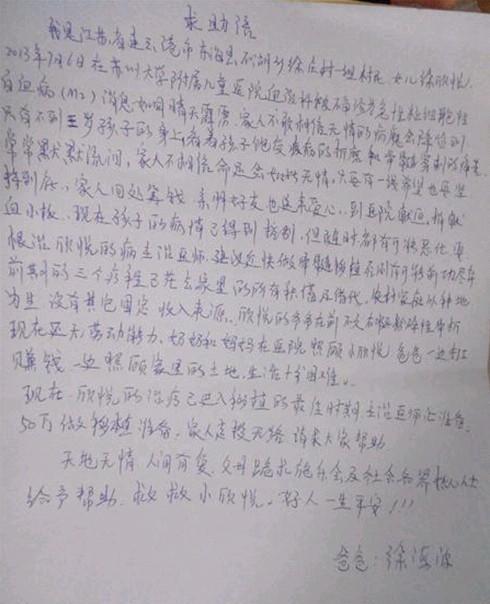 求助语
我是江苏省连云港市东海县石湖乡徐庄村一组村民 女儿徐欣悦
2013年7月6日在苏州大学附属儿童医院血液科被不幸诊为急性粒细胞性
白血病(M2)消息如同晴天霹雳 家人不敢相信无情的病魔会降临到
只有不到三岁孩子的身上 看着孩子饱受疾病的折磨和骨髓穿刺的痛苦
常常默默流泪，家人不相信命运会如此无情，只要有一线希望也要坚
持到底，家人四处筹钱 亲朋好友也送来爱心，到医院献血，捐献
血小板，现在孩子的病情已得到控制，但随时都有可能恶化 要
根治欣悦的病主治医师 建议尽快做骨髓移植 否则有可能前功尽弃
前期的三个疗程已花去家里的所有积蓄及借代，农村家庭以种地
为生 没有其它固定收入来源，欣悦的爷爷在前不久右
现在无劳动能力，奶奶和妈妈在医院照顾小欣悦 爸爸一边打工
赚钱一边照顾家里的土地，生活十分困难。
现在，欣悦的治疗已进入移植的最佳时期 主治医师让准备
50万做移植准备，家人走投无路 请求大家帮助
天地无情 人间有爱，父母跪求 及社会各界热心人士
给予帮助，救救小欣悦，好人一生平安!!!
爸爸:徐